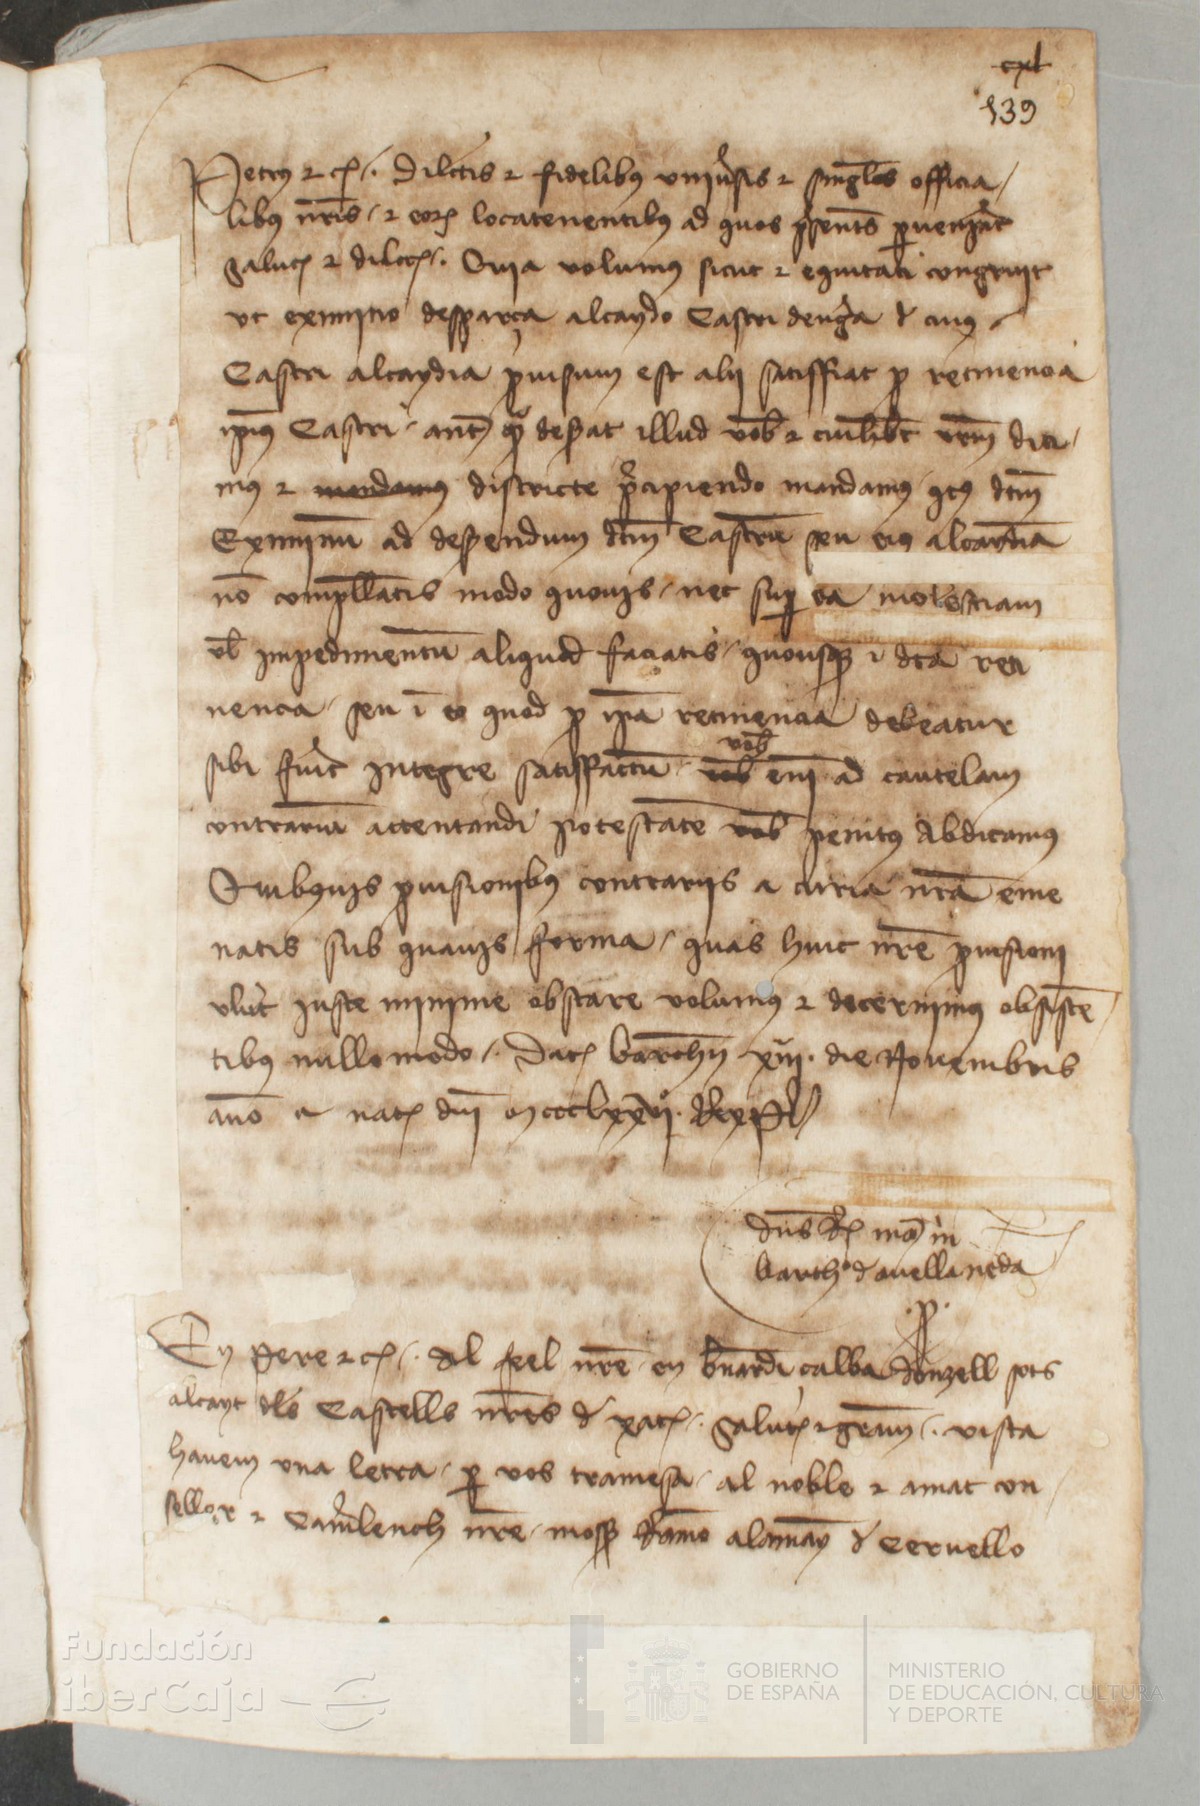 cxl
139
Petrus &c. Dilectis & fidelibus universis & singulis officia
libus nostris & eorum locatenentibus ad quos presentes pervenerint
Salutem & dilectionem. Quia volumus sicut & equitati congruit
ut eximino desparça alcaydo Castri denguera de cuius
Castri alcaydia provisum est alii satisffiat pro retinencia
ipsius Castri antequam desemparet illud vobis & cuilibet vestrum dici
mus & mandamus districte precipiendo mandamus quatenus dictum
Eximinum ad desemparandum dictum Castrum seu eius alcaydiam
non compellatis modo quovis nec super ea molestiam
vel impedimentum aliquod faciatis quousque in dicta reti
nencia seu in eo quod pro ipsa retinencia debeatur
sibi fuerit integre satisffactum vobis
vobis enim ad cautelam
contrarium attentandi potestatem vobis penitus Abdicamus
Quibusvis provisionibus contrariis a curia nostra eme
natis sub quavis forma quas huic nostre provisioni
iuste minime obstare volumus & decernimus obsisten
tibus nullo modo. Datum barchinone XIII die Novembris
anno a nativitate domini MCCCLXXVI. Rex P
Dominus Rex mandavit michi
bartholomeo de avellaneda
.p.
En Pere &c. Al feel nostre en bernardi calba donzell sots
alcayt dels Castells nostres de xativa. Salutem & gratiam. vista
havem una letra per vos tramesa al noble & amat con
seller & Camerlench nostre mossen Ramon alamany de Cervello
Fundación
iberCaja
GOBIERNO
DE ESPAÑA
MINISTERIO
DE EDUCACIÓN, CULTURA
Y DEPORTE